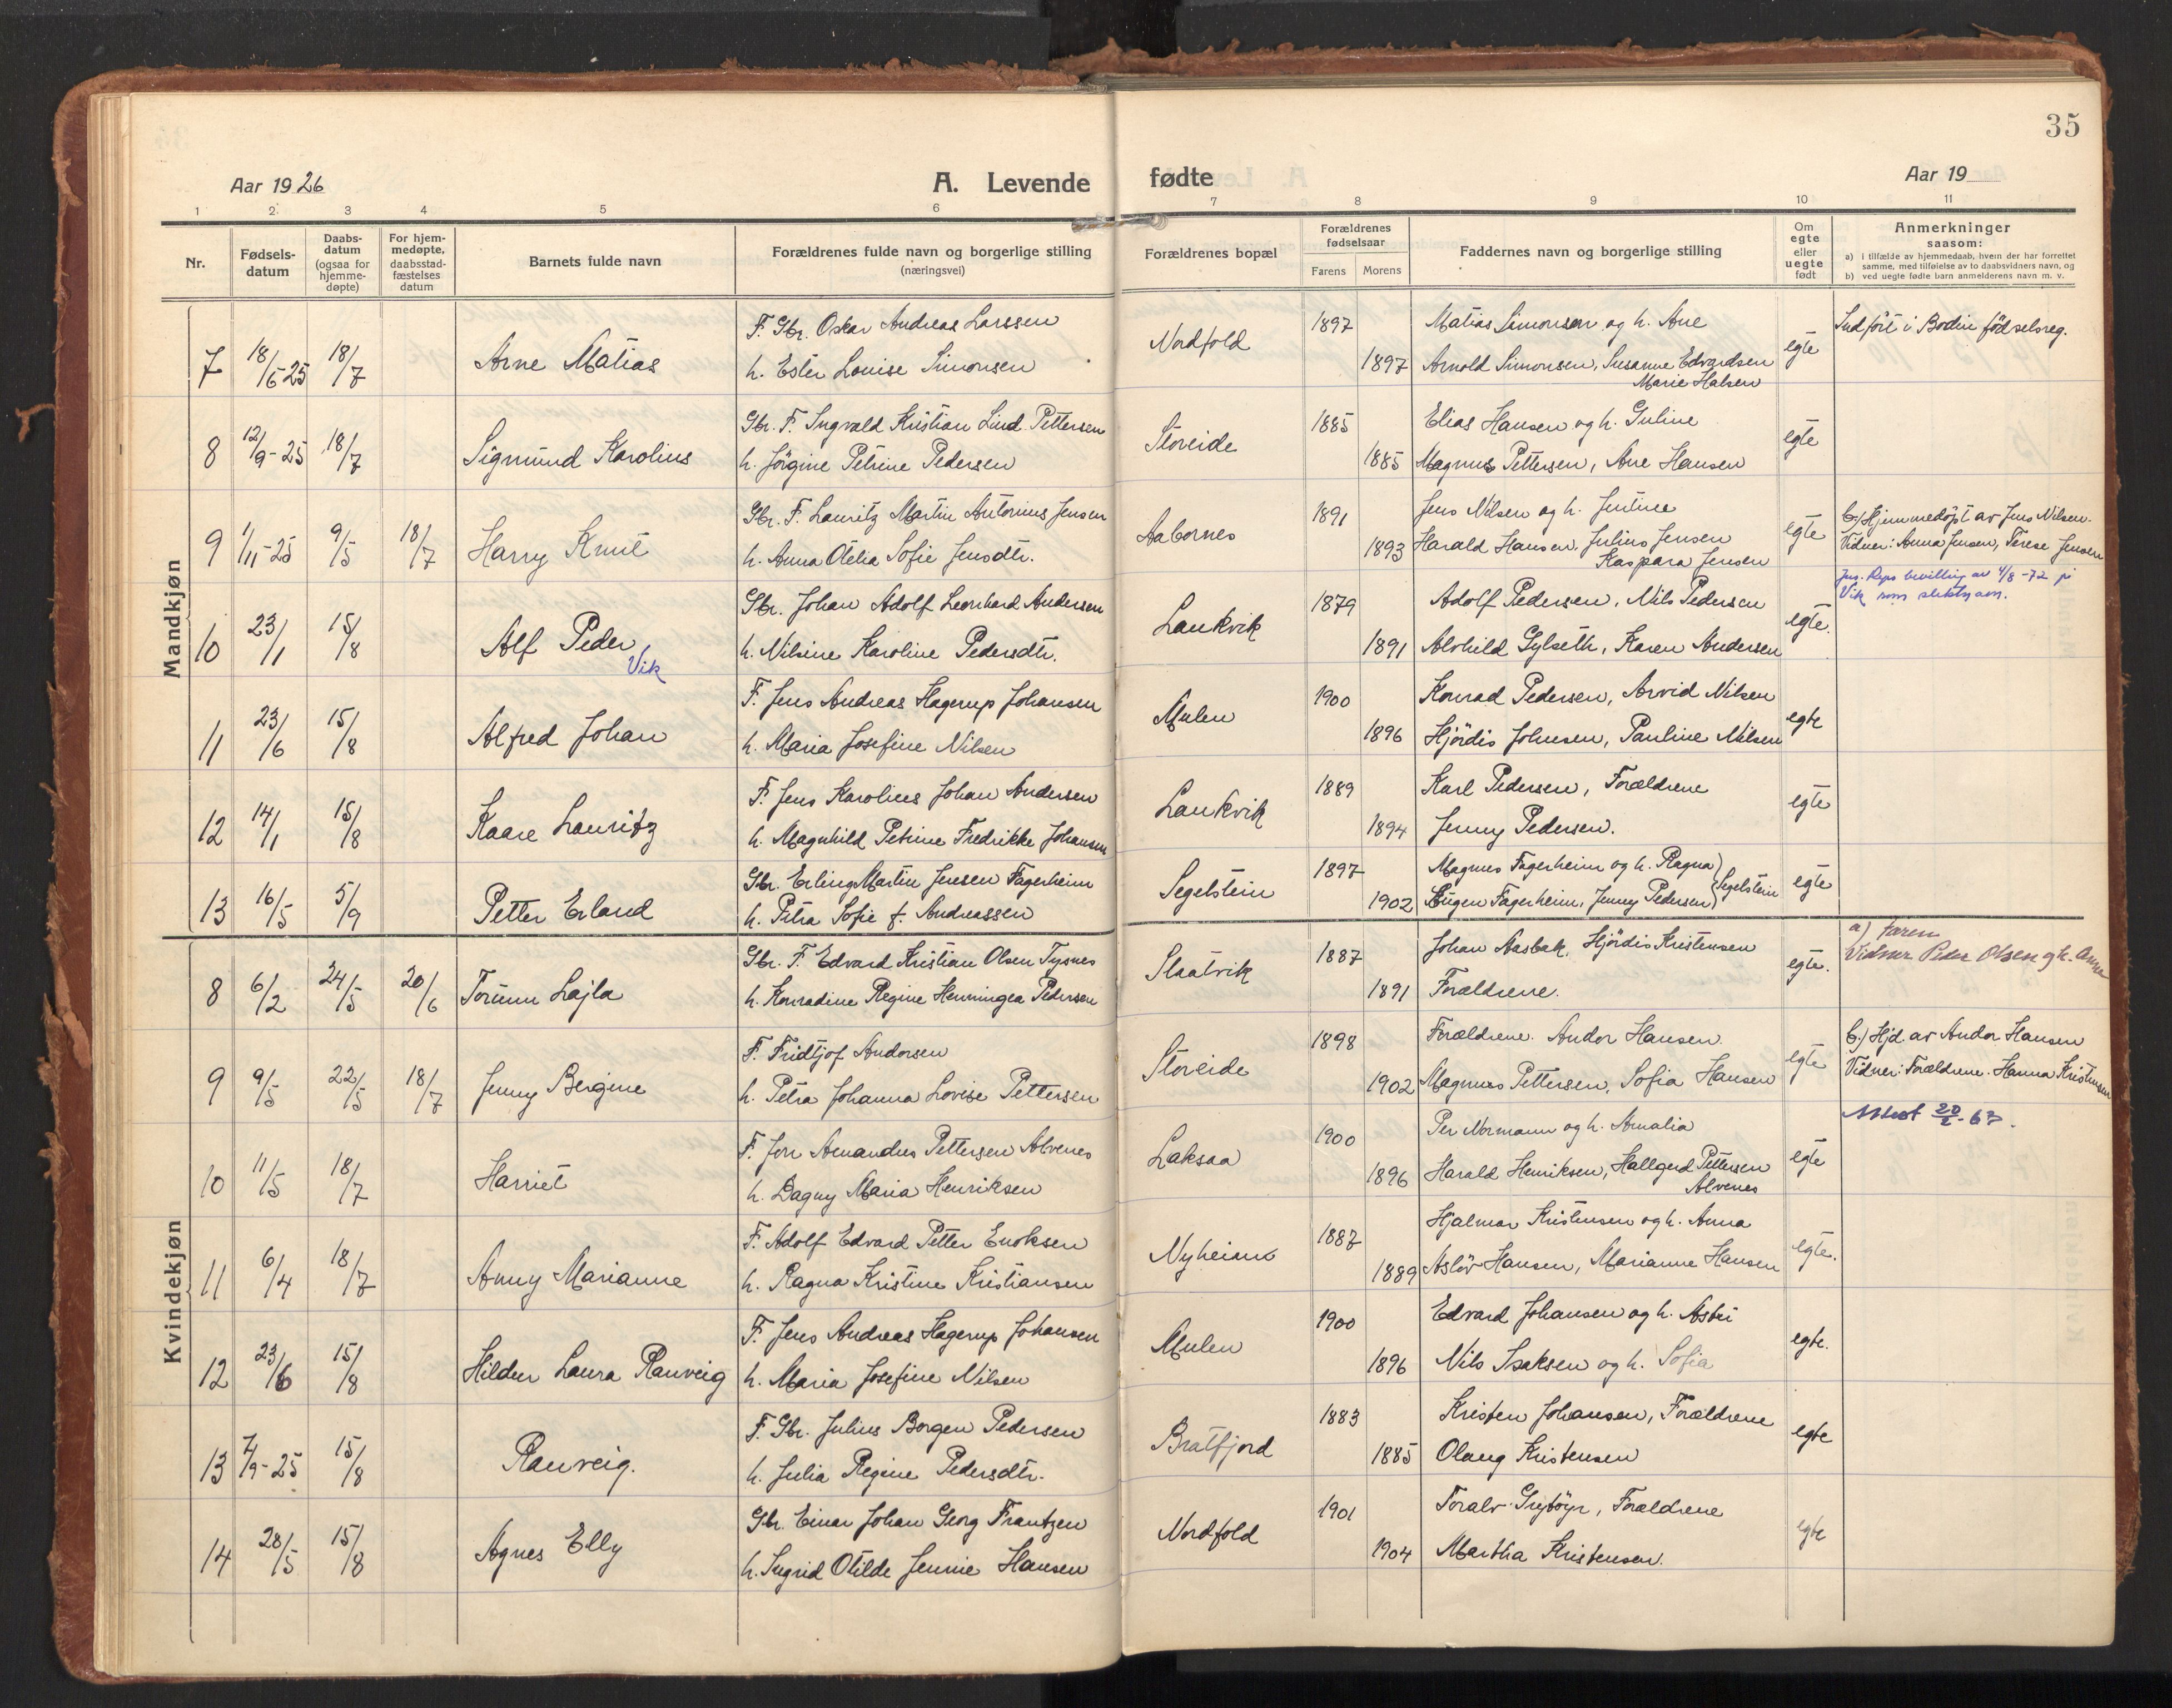 35
Aar 1926
A. Levende fødte
Aar 19
1 2 3 4 5 6 7 8 9 10 11
Nr.
Fødsels-
datum
Daabs-
datum
(ogsaa for
hjemme-
døpte)
For hjem-
medøpte,
daabsstad-
fæstelses
datum
Barnets fulde navn
Forældrenes fulde navn og borgerlige stilling
(næringsvei)
Forældrenes bopæl
Forældrenes
fødselsaar
Farens Morens
Faddernes navn og borgerlige stilling
Om
egte
eller
uegte
født
Anmerkninger
saasom:
a) i tilfælde av hjemmedaab, hvem der har forrettet
samme, med tilføielse av to daabsvidners navn, og
b) ved uegte fødte barn anmelderens navn m. v.
Mandkjøn
F. Gbr. Oskar Andreas Larssen
7 18/6-25 18/7 Arne Matias
h. Ester Louise Simonsen
Nordfold 1897 1897
Matias Simonsen og h. Ane
Arnold Simonsen, Susanne Edvardsen
Marie Halsen
egte
Indført i Bodin fødselsreg.
Gbr. F. Ingvald Kristian Lind Pettersen
8 12/9-25 18/7 Sigmund Karolius
h. Jørgine Petrine Pedersen
Storeide 1885 1885
Elias Hansen og h. Guline
Magnus Pettersen, Ane Hansen
egte
Gbr. F. Lauritz Martin Antonius Jensen
9 1/11-25 9/5 18/7 Harry Knut
h. Anna Otelia Sofie Jensdtr.
Aabornes 1891 1893
Jens Nilsen og h. Justine
Harald Hansen, Julius Jensen
Kaspara Jensen
egte
b.) Hjemmedøpt av Jens Nilsen.
Vidner: Anna Jensen, Terese Jensen
Gbr. Johan Adolf Leonhard Andersen
10 23/1 15/8 Alf Peder
Vik
h. Nilsine Karoline Pedersdtr.
Laukvik 1879 1891
Adolf Pedersen, Nils Pedersen
Alvhild Gylseth, Karen Andersen
egte.
Jus. Deps bevilling av 4/8-72 på
Vik som slektsnavn.
F. Jens Andreas Hagerup Johansen
11 23/6 15/8 Alfred Johan
h. Maria Josefine Nilsen
Mulen 1900 1896
Konrad Pedersen, Arvid Nilsen
Hjørdis Johnsen, Pauline Nilsen
egte
F. Jens Karolius Johan Andersen
12 14/1 15/8 Kaare Lauritz
h. Magnhild Petrine Fredrikke Johansen
Laukvik 1889 1894
Karl Pedersen, Forældrene
Jenny Pedersen.
egte
Gbr. Erling Martin Jensen Fagerheim
13 16/5 5/9 Petter Erland
h. Petra Sofie f. Andreassen
Segelstein 1897 1902
Magnus Fagerheim og h. Ragna
Eugen Fagerheim, Jenny Pedersen } Segelstein
egte
Kvindekjøn
Gbr. F. Edvard Kristian Olsen Tysnes
8 6/2 24/5 20/6 Torunn Lajla
h. Konradine Regine Henningea Pedersen
Slaatvik 1887 1891
Johan Aasbak, Hjørdis Kristensen
Forældrene.
egte.
a) faren
Vidner Peder Olsen og h. Anna
F. Fridtjof Andorsen
9 9/5 22/5 18/7 Jenny Bergine
h. Petra Johanna Lovise Pettersen
Storeide 1898 1902
Forældrene. Andor Hansen
Magnus Pettersen, Sofia Hansen
egte
b.) Hjd av Andor Hansen
Vidner: Forældrene. Hanna Kristensen
F. Jon Amandus Pettersen Alvenes
10 11/5 18/7 Harriet
h. Dagny Maria Henriksen
Laksaa 1900 1896
Per Normann og h. Amalia
Harald Henriksen, Hallgerd Pettersen
Alvenes
egte
Attest 20/2-67.
F. Adolf Edvard Petter Enoksen
11 6/4 18/7 Anny Marianne
h. Ragna Kristine Kristiansen
Nyheim 1887 1889
Hjalmar Kristensen og h. Anna
Asløv Hansen, Marianne Hansen
egte.
F. Jens Andreas Hagerup Johansen
12 23/6 15/8 Hildur Laura Ranveig
h. Maria Josefine Nilsen
Mulen 1900 1896
Edvard Johansen og h. Asbri
Nils Isaksen og h. Sofia
egte.
F. Gbr. Julius Borgen Pedersen
13 7/9-25 15/8 Ranveig.
h. Julia Regine Pedersdtr.
Bratfjord 1883 1885
Kristen Johansen, Forældrene
Olaug Kristensen
egte
Gbr. Einar Johan Georg Frantzen
14 28/5 15/8 Agnes Elly
h. Ingrid Otilde Jennie Hansen
Nordfold 1901 1904
Toralv Grytøyr, Forældrene
Martha Kristensen.
egte